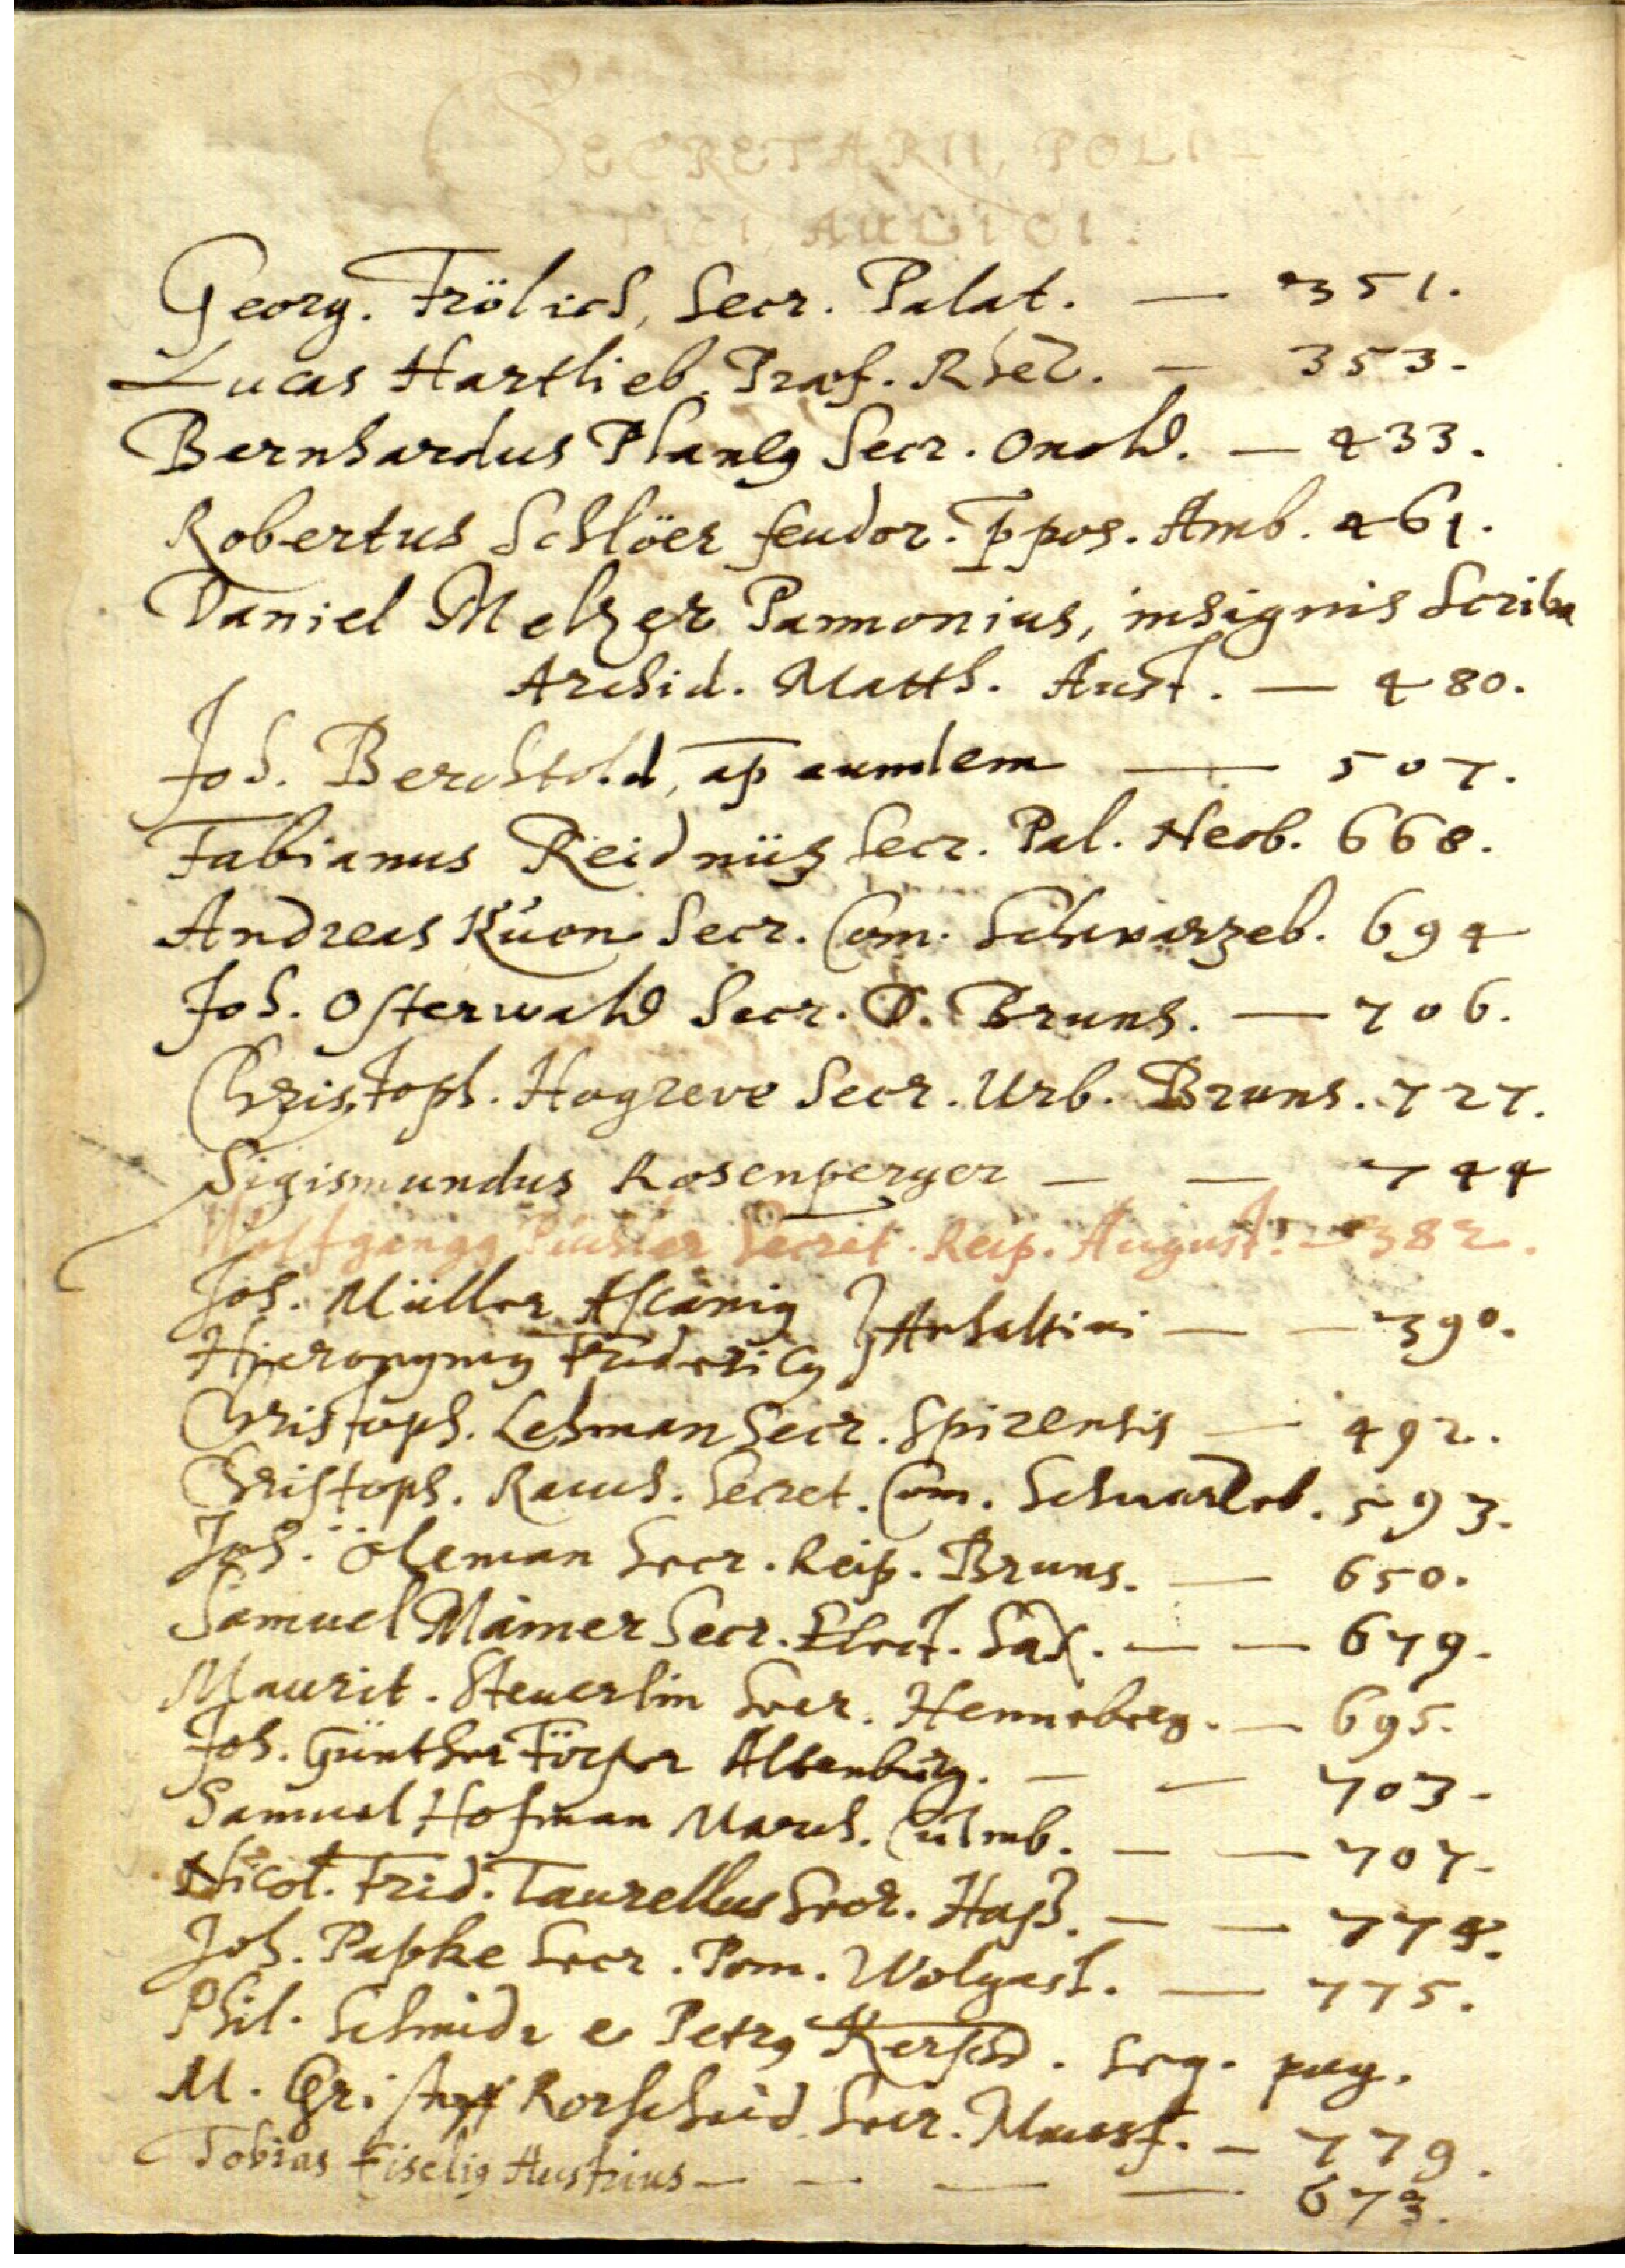 SECRETARII, POLI-
TICI, AULICI.
Georg. Frölich, Secr. Palat. — 351.
Lucas Hartlieb. Praef. Rhet. — 353.
Bernhardus Secr. Onold. — 433.
Robertus Schlöer feudor. Ppos. Amb. 461.
Daniel Melzer Pannonius, insignis Scriba
Archid. Matth. Aust. — 480.
Joh. Berchtold, ap eumdem — 507.
Fabianus Reidnüz Secr. Pal. Neob. 668.
Andreas Kuon Secr. Com. Schwarzeb. 694
Joh. Osterwald Secr. D. Bruns. — 706.
Christoph. Hogreve Secr. Urb. Bruns. 727.
Sigismundus Rosenperger — — 744
Wolfgangg Secret. Reip. August. — 382.
Joh. Müller Ascanig } Anhaltini — — 390.
Hieronymg Fridericg
Christoph. Lehman Secr. Spirensis — 492.
Christoph. Rauch. Secret. Com. Schwarzeb. 593.
Joh. Öleman Secr. Reip. Bruns. — 650.
Samuel Mämer Secr. Elect. Sax. — — 679.
Maurit. Steuerlin Secr. Henneberg. — 695.
Joh. Günther Altenburg. — — 703.
Samuel Hofman March. Culmb. — — 707.
Nicol. Frid. Taurellus Secr. Hass. — — 774.
Joh. Papke Secr. Pom. Wolgast. — 775.
Phil. Schmidt e Petrg . seq. pag.
M. Rorscheid Secr. — 779.
Tobias Fiselig Austrius — — — — 673.